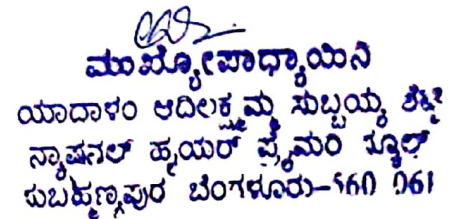 ಮುಖ್ಯೋಪಾಧ್ಯಾಯಿನಿ
ಯಾದಾಳಂ ಆದಿಲಕ್ಷ್ಮಮ್ಮ ಸುಬ್ಬಯ್ಯ ಶೆಟ್ಟಿ
ನ್ಯಾಷನಲ್ ಹೈಯರ್ ಪ್ರೈಮರಿ ಸ್ಕೂಲ್
ಸುಬ್ರಹ್ಮಣ್ಯಪುರ ಬೆಂಗಳೂರು-560 061